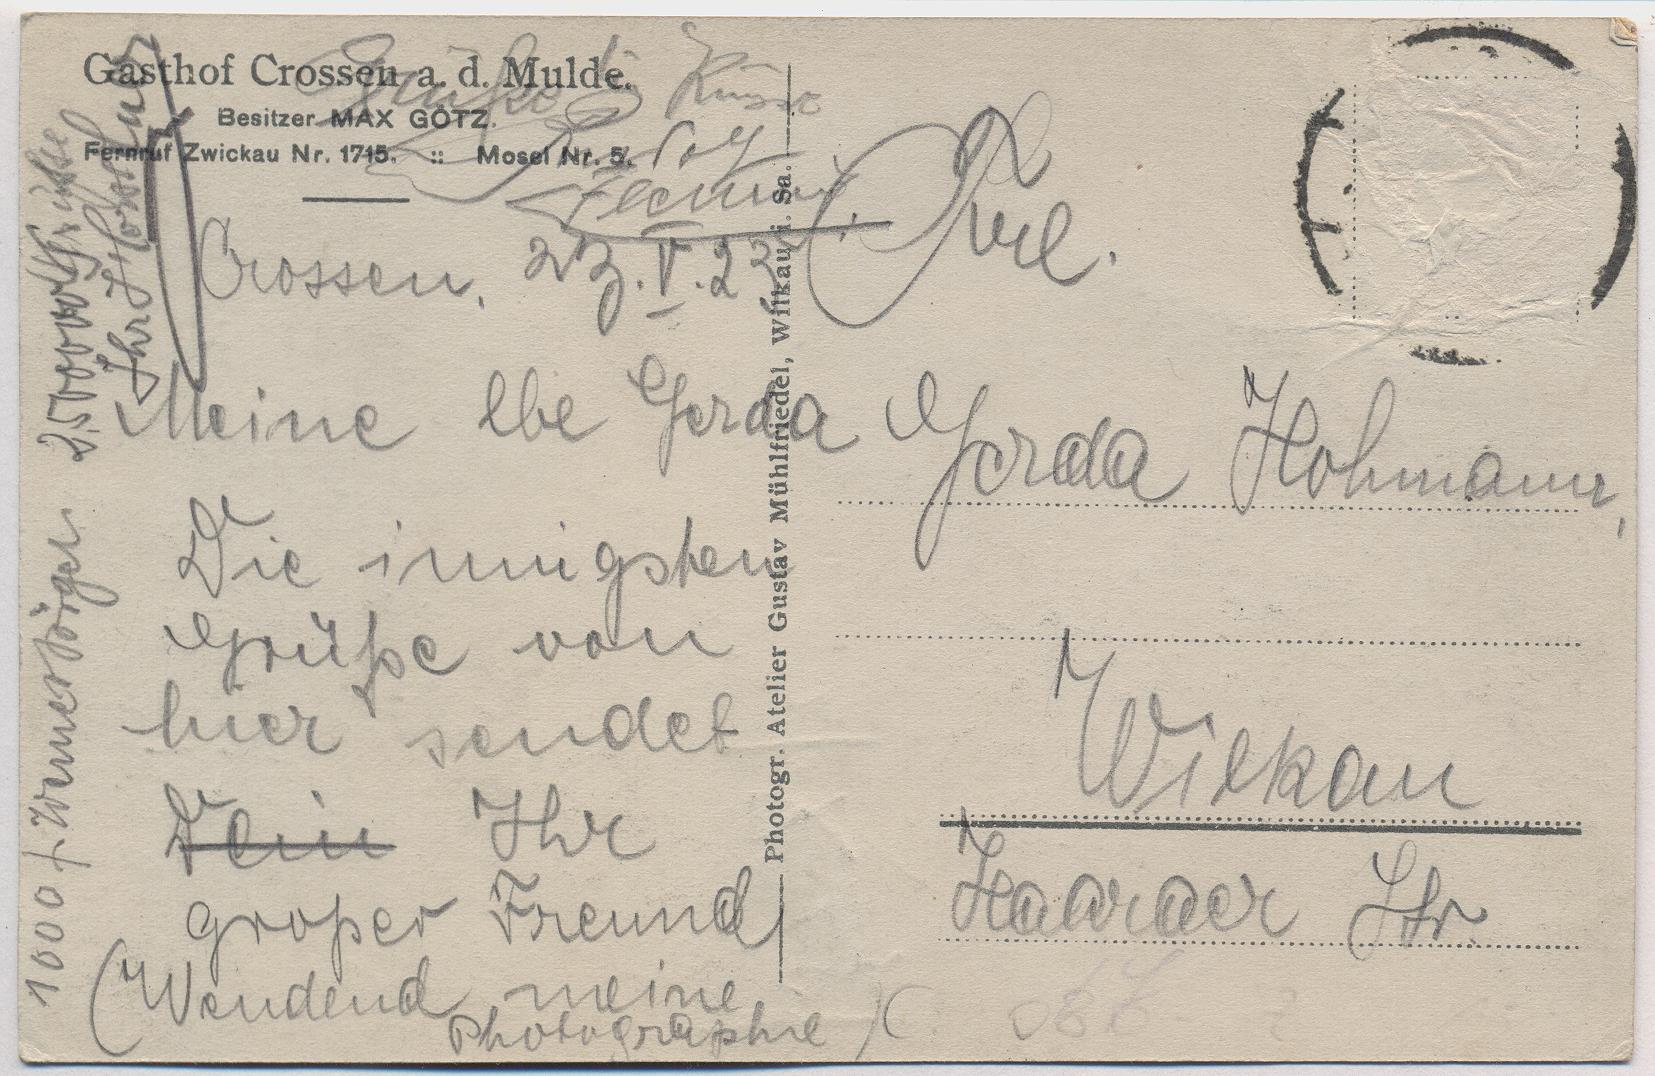 Gasthof Crossen a. d. Mulde.
Besitzer MAX GÖTZ.
Fernruf Zwickau Nr. 1715. :: Mosel Nr. 5.
Crossen, 23.V.22
Meine lbe Gerda
Die innigsten
Grüße von
hier sendet
Dein Ihr
großer Freund
(Wendend meine
Photographie)
Photogr. Atelier Gustav Mühlfriedel, Wilkau i. Sa.
Frl.
Gerda Hohmann,
Wilkau
Haaraer Str.
Grüße
Küsse
1000
Grüsse
Ihr